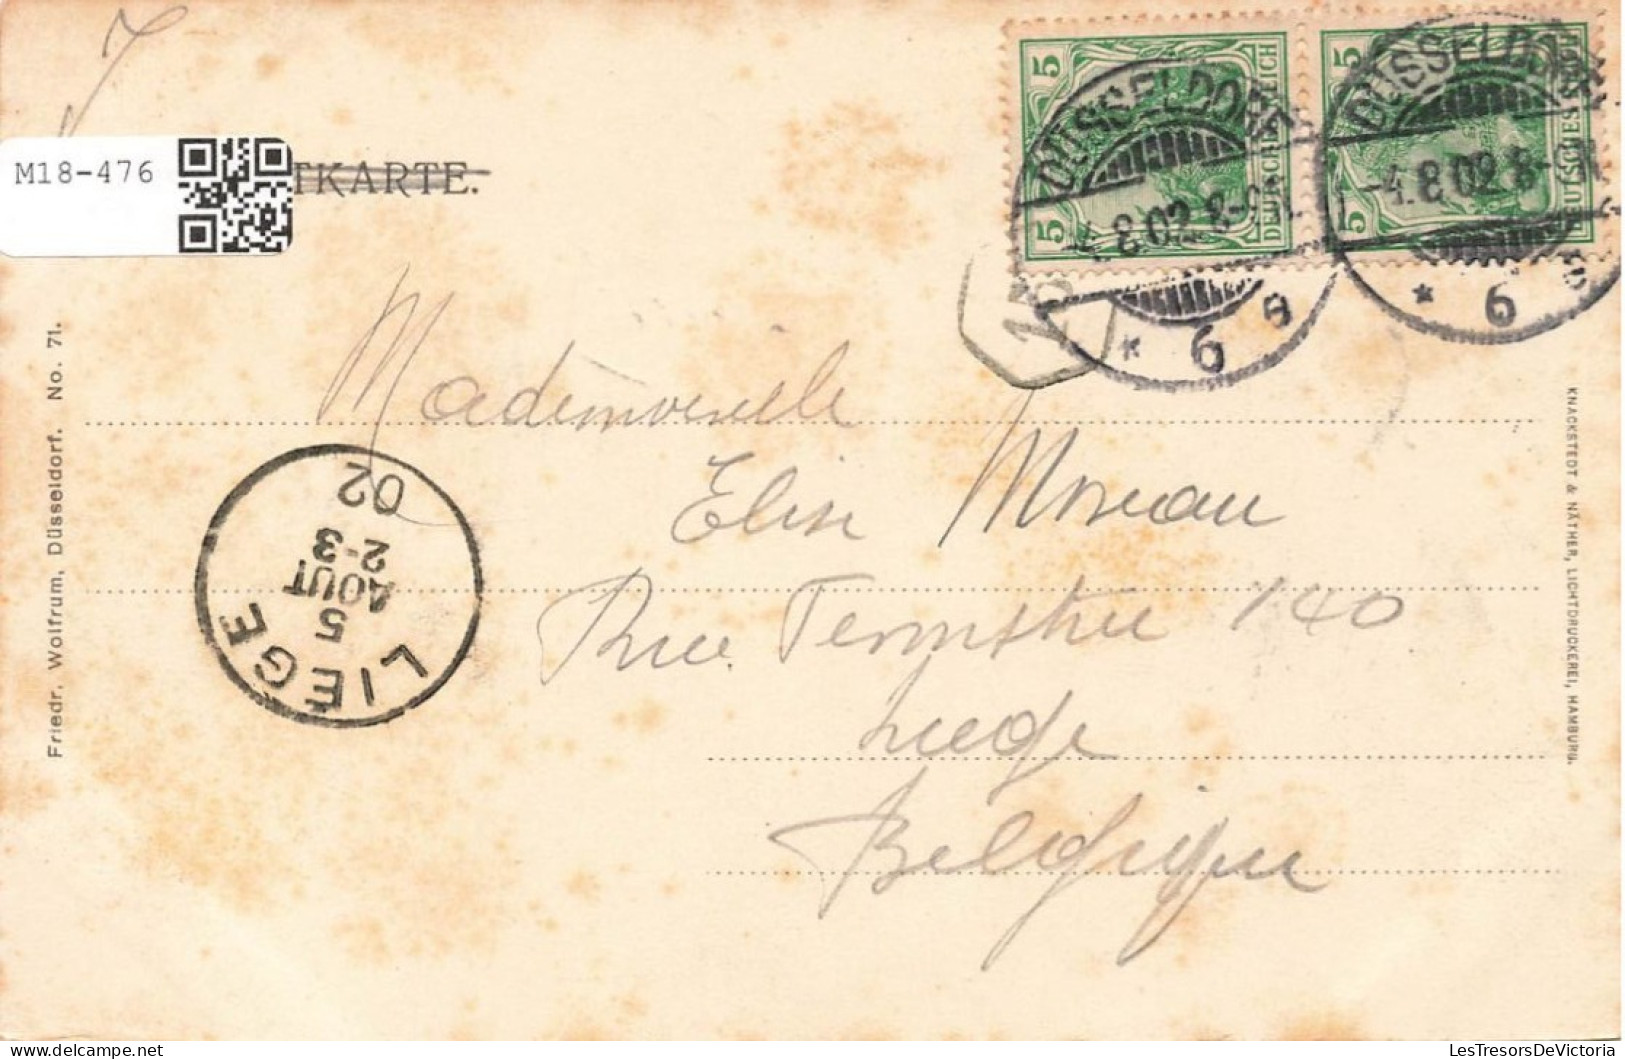 M18-476
TKARTE.
5 DEUTSCHES REICH 5
5 DEUTSCHES REICH 5
DÜSSELDORF
8.02. 8-9
* 6 g
DÜSSELDORF
-4.8.02. 8-
* 6
Mademoiselle
Elise Moreau
Rue 140
Liege
Belgique
LIEGE
5
AOUT
2-3
02
Friedr. Wolfrum, Düsseldorf. No. 71.
KNACKSTEDT & NÄTHER, LICHTDRUCKEREI, HAMBURG.
LesTresorsDeVictoria